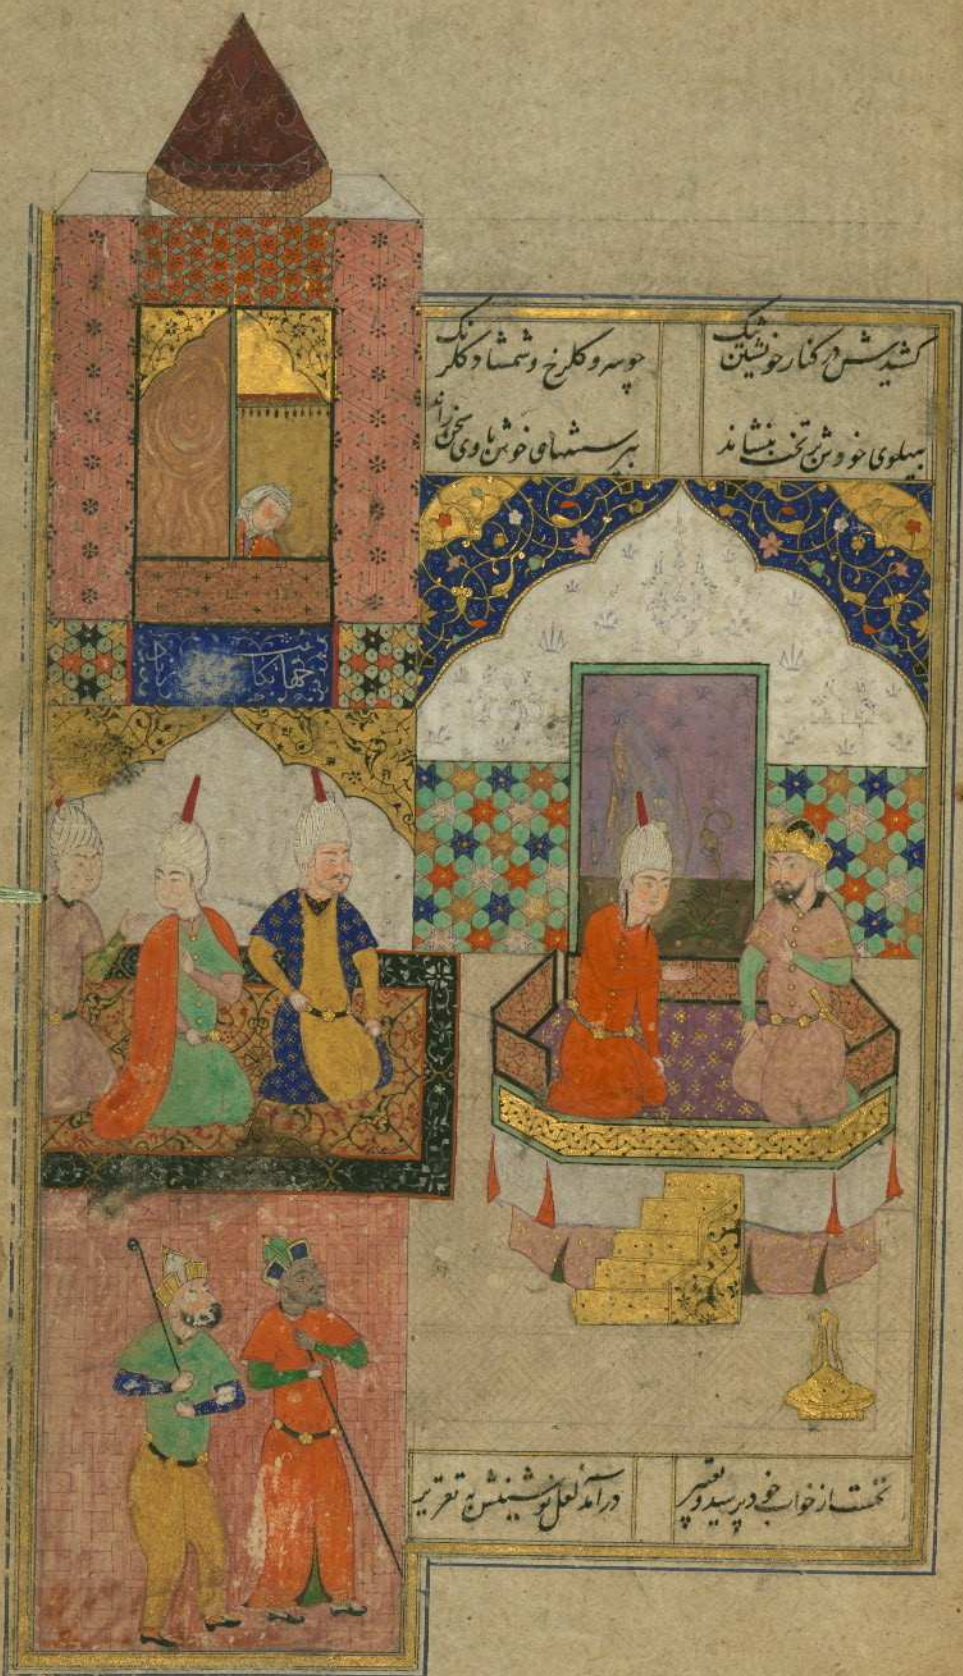 کشیدش در کنار خویشتن تنک چو سرو کلرخ و شمشاد کلرنک
بپهلوی خودش بر تخت بنشاند بپرسشهای خوش با وی سخن راند
نخست از خواب خود پرسید و تعبیر درآمد لعل نوشینش به تقریر